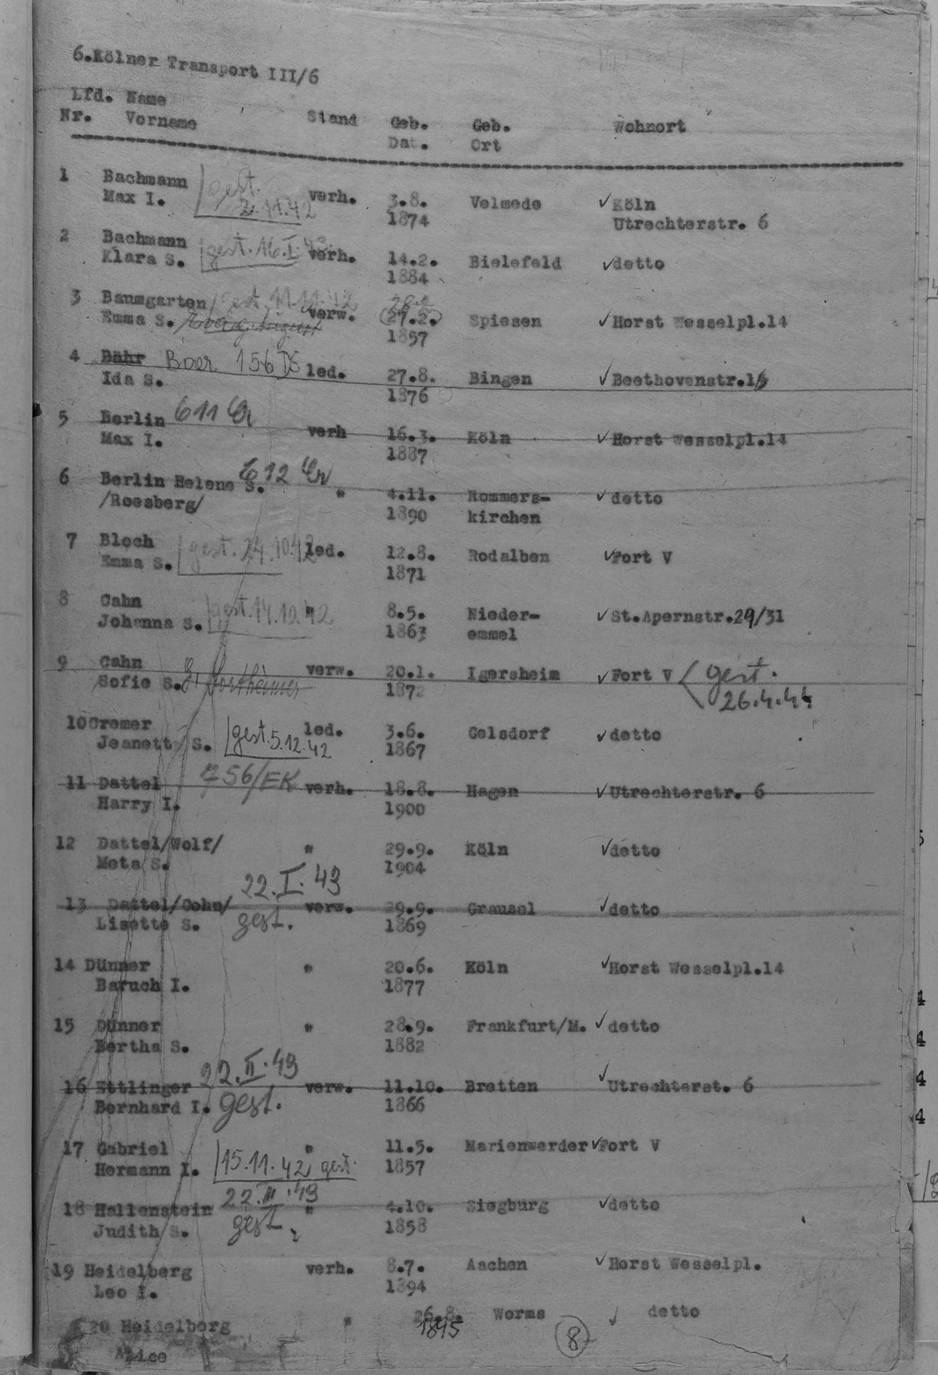 6.Kölner Transport III/6
Lfd. Name Stand Geb. Geb. Wohnort
Nr. Vorname Dat. Ort
1 Bachmann gest. verh. 3.8. Velmede ✓Köln
Max I. 2.11.42 1874 Utrechterstr. 6
2 Bachmann gest. 16.I.43 verh. 14.2. Bielefeld ✓detto
Klara S. 1884
3 Baumgarten gest. 11.11.42 verw. 27.2. Spiesen ✓Horst Wesselpl.14
Emma S. 1857
4 Bähr Baer 156 led. 27.8. Bingen ✓Beethovenstr.16
Ida S. 1876
5 Berlin 611 Er verh 16.3. Köln ✓Horst Wesselpl.14
Max I. 1887
6 Berlin Helene S. 612 Er " 4.11. Rommers- ✓detto
/Roesberg/ 1890 kirchen
7 Bloch gest. 24.10.42 led. 12.8. Rodalben ✓Fort V
Emma S. 1871
8 Cahn gest. 14.10.42 " 8.5. Nieder- ✓St.Apernstr.29/31
Johanna S. 1863 emmel
9 Cahn verw. 20.1. Igersheim ✓Fort V gest.
Sofie S. 1872 26.4.44
10 Cremer gest. 5.12.42 led. 3.6. Gelsdorf ✓detto
Jeanette S. 1867
11 Dattel 756/EK verh. 18.8. Hagen ✓Utrechterstr. 6
Harry I. 1900
12 Dattel/Wolf/ " 29.9. Köln ✓detto
Meta S. 1904
22.I.43
13 Dattel/Cohn/ verw. 29.9. Grausel ✓detto
Lisette S. gest. 1869
14 Dünner " 20.6. Köln ✓Horst Wesselpl.14
Baruch I. 1877
15 Dünner " 28.9. Frankfurt/M. ✓detto
Bertha S. 1882
22.II.43
16 Ettlinger verw. 11.10. Bretten ✓Utrechterst. 6
Bernhard I. gest. 1866
17 Gabriel " 11.5. Marienwerder ✓Fort V
Hermann I. 15.11.42 gest. 1857
22.III.43
18 Hallenstein " 4.10. Siegburg ✓detto
Judith S. gest. 1858
19 Heidelberg verh. 8.7. Aachen ✓Horst Wesselpl.
Leo I. 1894
20 Heidelberg " 26.8. Worms ✓ detto
Alice 1895
8